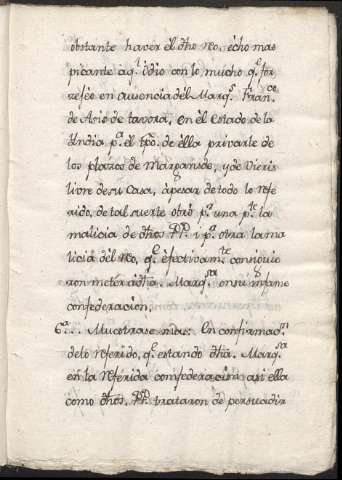 obstante haver él dho rèo, écho mas
picante aq.l ódio con lo mucho q.e for
zejéo en ausencia dél Marq.s Fran.co
de Asis de tavora, en él Estado de la
Yndia p.a él tpo. de ella privarle de
los plazos de Margaride, y de Vieris
livre de su Casa, àpesar de todo lo refe
rido, de tal suerte obrò p.r una p.te la
malicia de dhos. PP. i p.r otra la ma
licia dél rèo, q.e éfectivam.te consiguie
ron meter à dha. Marq.sa en su infame
confederacion.
6.a... Muestrase mas: En confirmac.n
delo referido, q.e estando dha. Marq.sa
en la referida comfederacion asi ella
como dhos. PP. trataron de persuadir